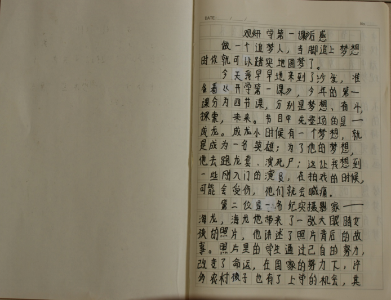 观研学第一课后感
做一个追梦人，当脚追上梦想
时你就可以踏实地圆梦了。
今天我早早地来到了沙发，准
备看《开学第一课》，今年的第一
课分为四节课，分别是梦想、有
探索，未来。节目中先登场的是一
成龙。成龙小时候有一个梦想，就
是成为一名英雄；为了他的梦想，
他去跑龙套、演死尸；这让我想到
一些刚入门的演员，在拍戏的时候，
可能会受伤，他们就会喊痛。
第二位是一名纪实摄影家——
海龙，海龙他带来了一张大眼睛女
孩的照片。他讲述了照片背后的故
事。照片里的学生通过自己的努力，
改变了命运，在国家的努力下，许
多农村孩子也有了上学的机会，其